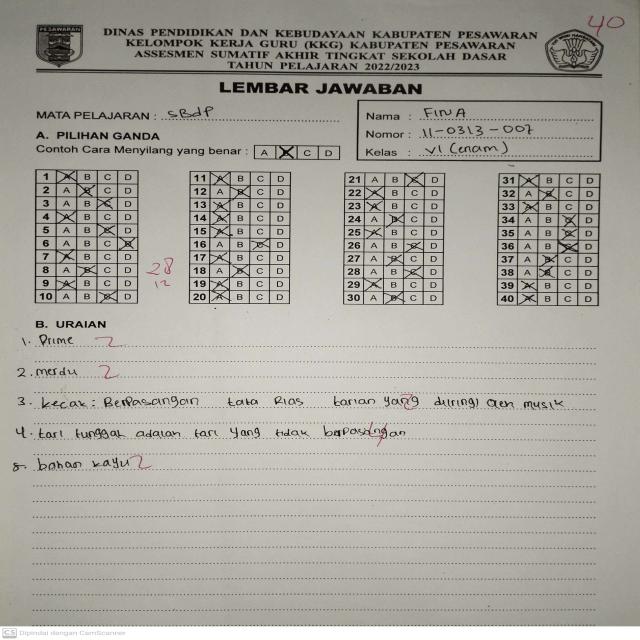 PESAWARAN
DINAS PENDIDIKAN DAN KEBUDAYAAN KABUPATEN PESAWARAN
KELOMPOK KERJA GURU (KKG) KABUPATEN PESAWARAN
ASSESMEN SUMATIF AKHIR TINGKAT SEKOLAH DASAR
TAHUN PELAJARAN 2022/2023
40
LEMBAR JAWABAN
MATA PELAJARAN : SBdP
Nama : FINA
Nomor : 11-0313-007
Kelas : VI (enam)
A. PILIHAN GANDA
Contoh Cara Menyilang yang benar : A B C D
1 A B C D
2 A B C D
3 A B C D
4 A B C D
5 A B C D
6 A B C D
7 A B C D
8 A B C D
9 A B C D
10 A B C D
28
12
11 A B C D
12 A B C D
13 A B C D
14 A B C D
15 A B C D
16 A B C D
17 A B C D
18 A B C D
19 A B C D
20 A B C D
21 A B C D
22 A B C D
23 A B C D
24 A B C D
25 A B C D
26 A B C D
27 A B C D
28 A B C D
29 A B C D
30 A B C D
31 A B C D
32 A B C D
33 A B C D
34 A B C D
35 A B C D
36 A B C D
37 A B C D
38 A B C D
39 A B C D
40 A B C D
B. URAIAN
1. Prime 2
2. merdu 2
3. kecak : Berpasangan tata Rias tarian yang diiringi oleh musik
4. tari tunggal adalah tari yang tidak berpasangan
5. bahan kayu 2
CS Dipindai dengan CamScanner